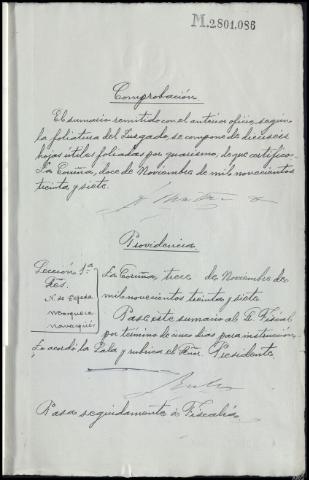 M.2801.086
Comprobación
El sumario remitido con el anterior oficio, segun
la foliatura del Juzgado, se compone de dieciseis
hojas útiles foliadas por guarismo, de que certifico.
La Coruña, doce de Noviembre de mil novecientos
treinta y siete.
Providencia
Sección 1ª
Sres.
mosquera
La Coruña trece de Noviembre de
mil novecientos treinta y siete
Pase este sumario al Sr. Fiscal
por término de cinco dias para instrucción.
Lo acordó la Sala y rubrica el Señor Presidente
Pasa seguidamente a Fiscalía